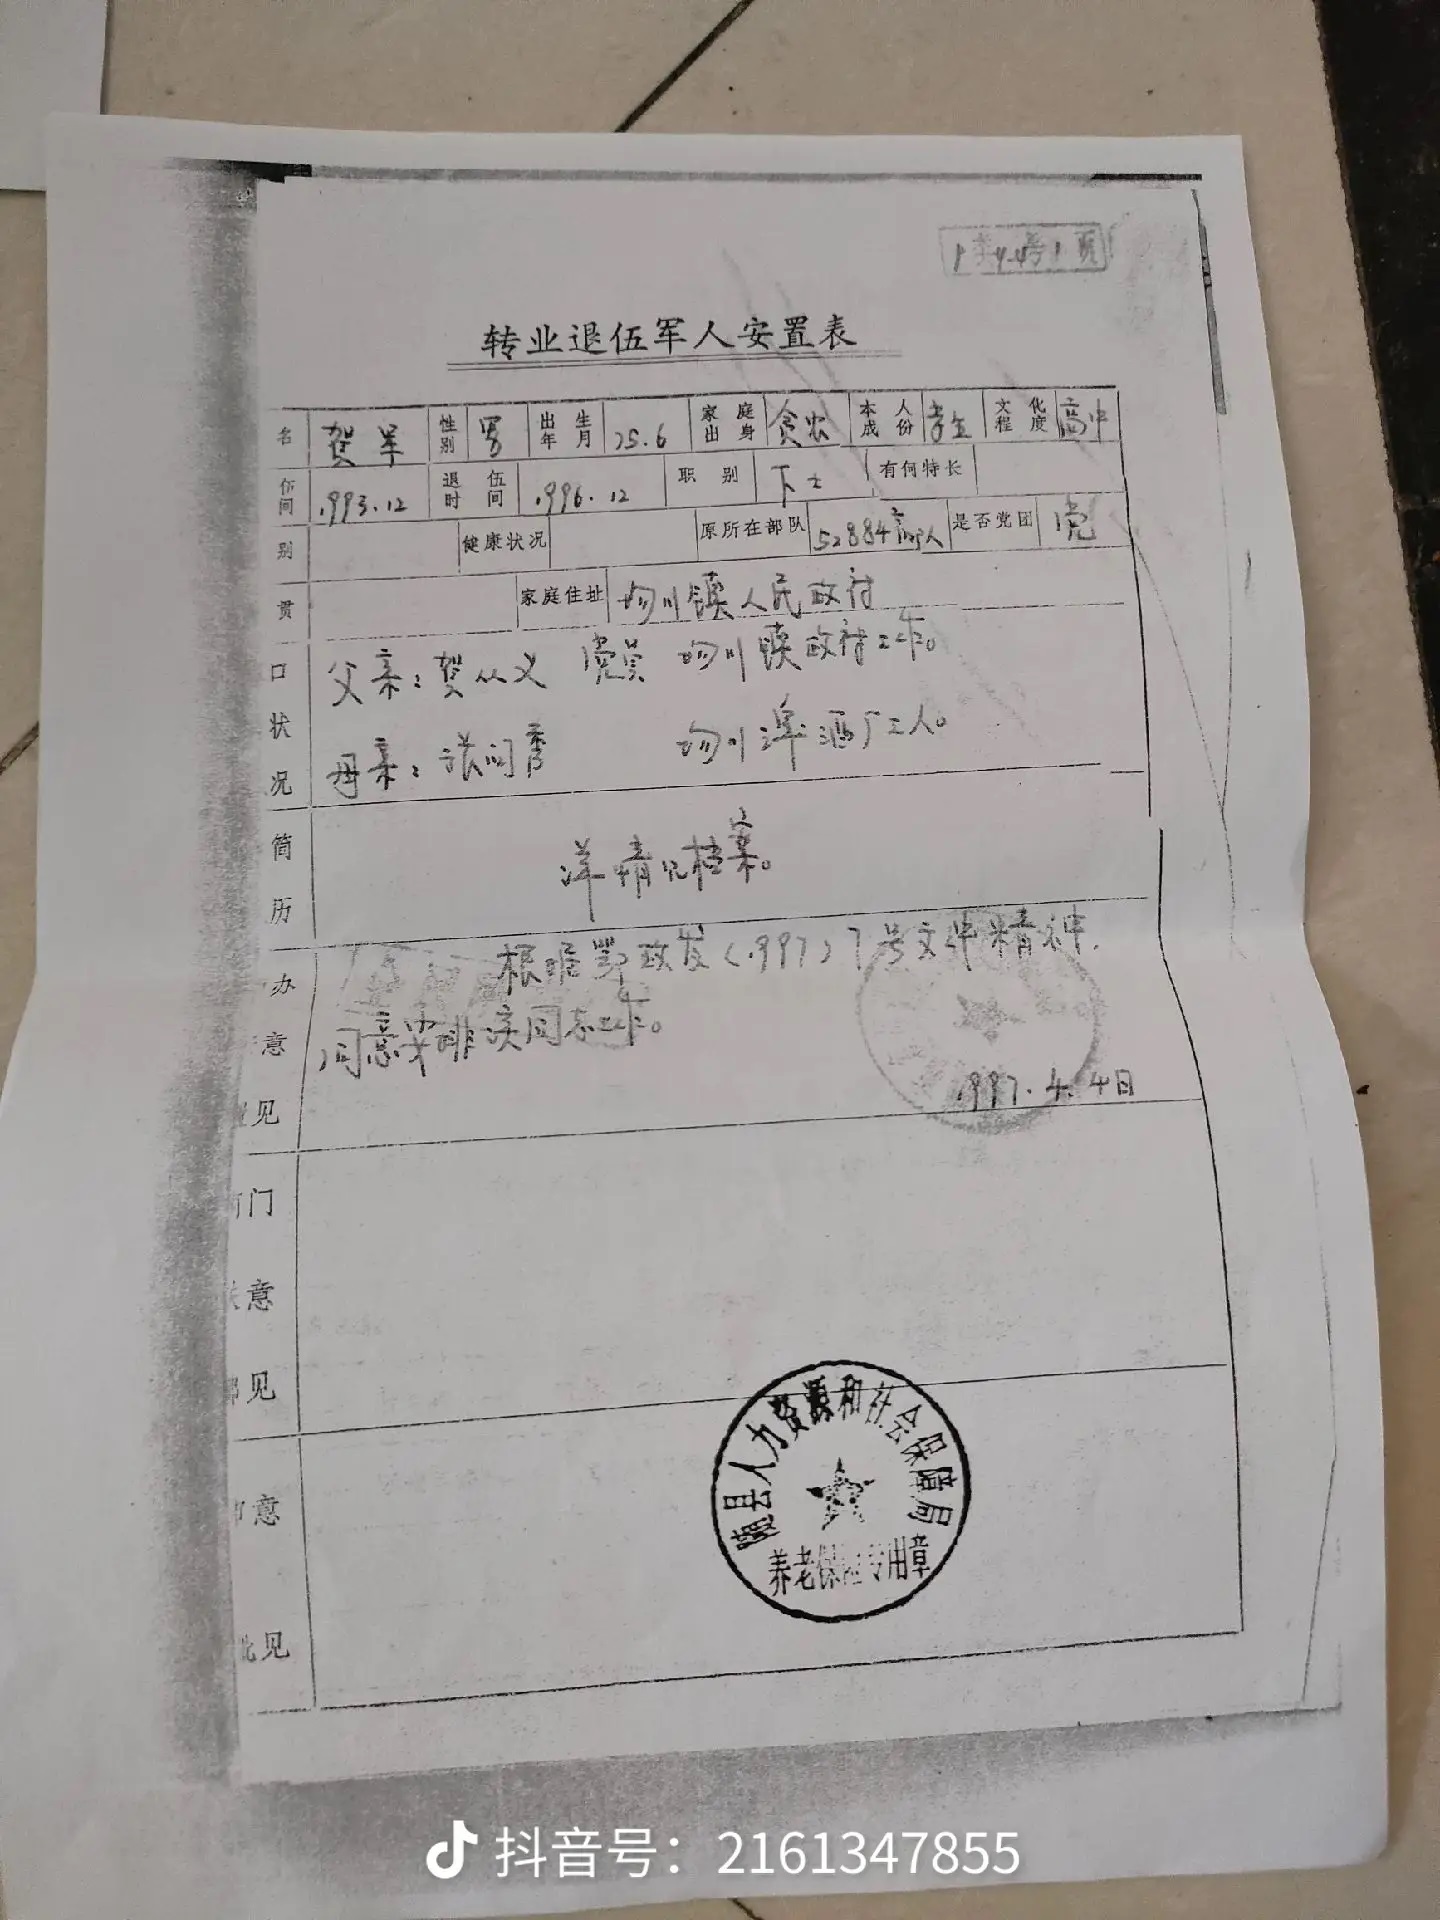 转业退伍军人安置表
名 贺军 性别 男 出生年月 75.6 家庭出身 贫农 本人成份 学生 文化程度 高中
伍间 1993.12 退伍时间 1996.12 职别 下士 有何特长
别 健康状况 原所在部队 52884 是否党团 党
贯 家庭住址 均川镇人民政府
口 父亲：贺从义 党员 均川镇政府工作。
状
况 母亲： 秀 均川啤酒厂工人。
简
历 详情见档案。
办 根据鄂政发（1997）7号文件精神，
意 同意安排该同志工作。
见 1997.4.4日
门
意
见
意
见
随县人力资源和社会保障局
养老保险专用章
抖音号：2161347855